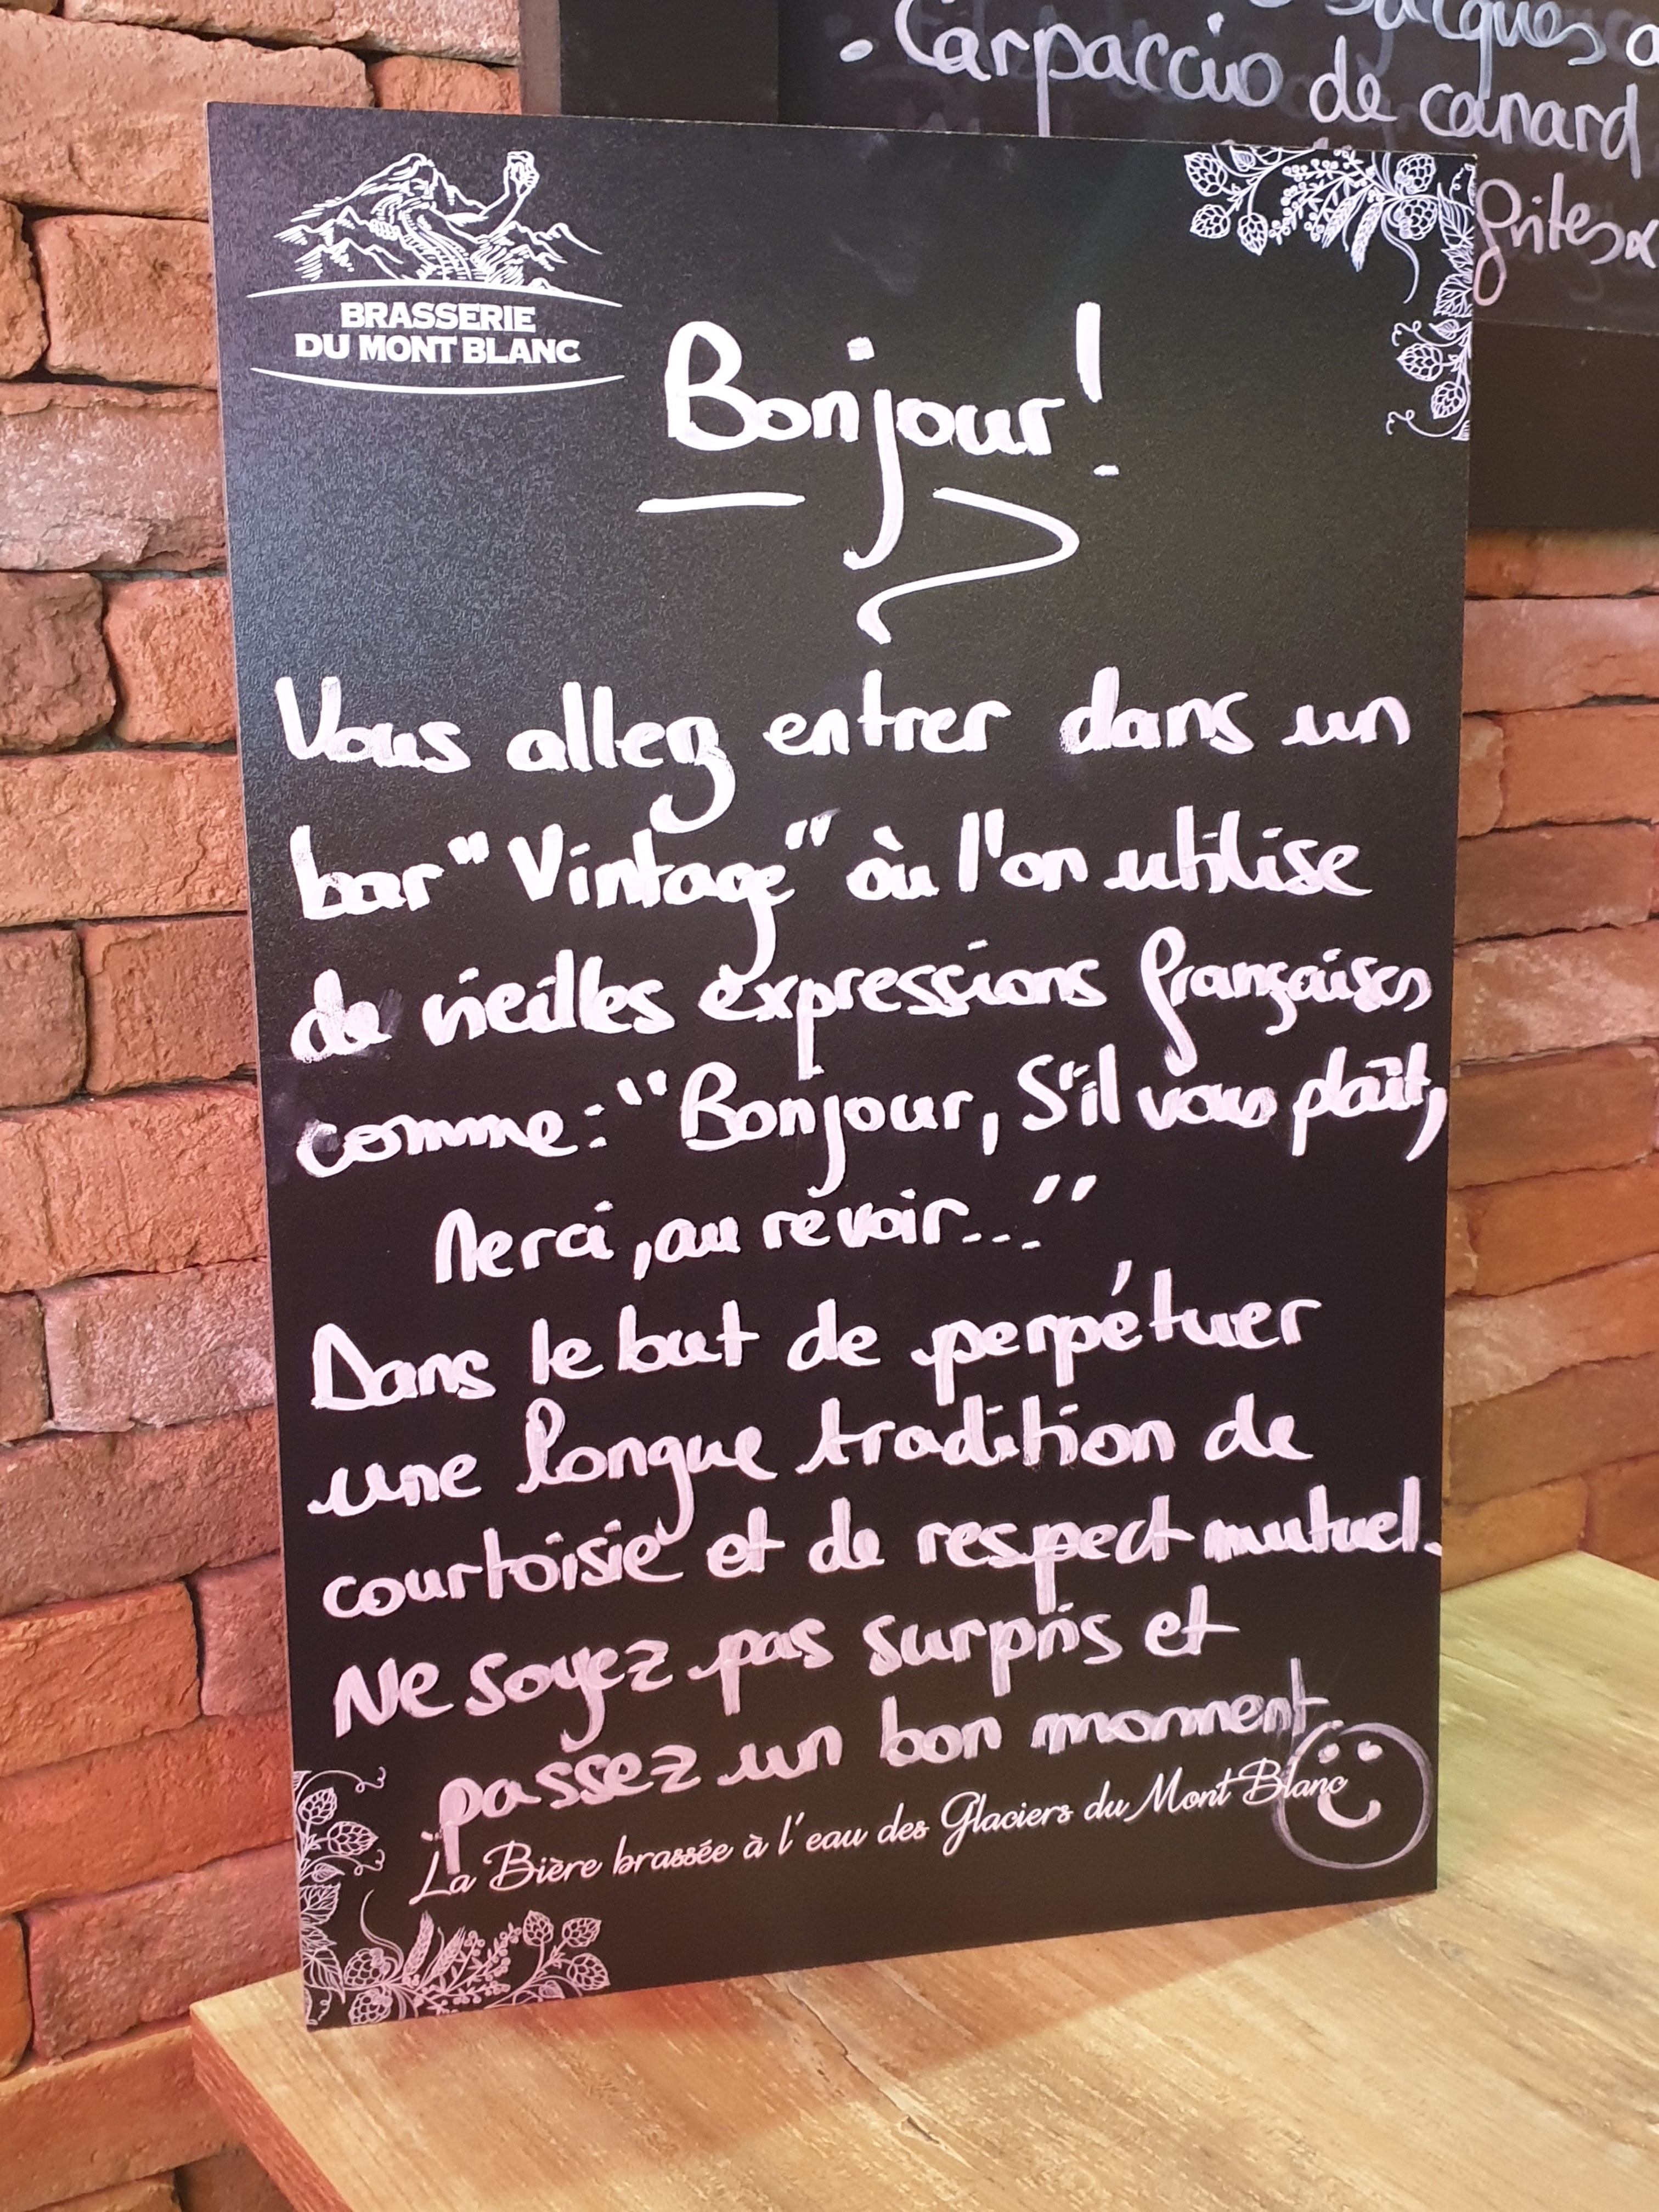 Jacques
. Carpaccio de canard
frites
BRASSERIE
DU MONT BLANC
Bonjour!
Vous allez entrer dans un
bar "Vintage" où l'on utilise
de vieilles expressions françaises
comme: "Bonjour, S'il vous plaît,
Merci, au revoir..."
Dans le but de perpétuer
une longue tradition de
courtoisie et de respect mutuel.
Ne soyez pas surpris et
passez un bon moment
La Bière brassée à l'eau des Glaciers du Mont Blanc